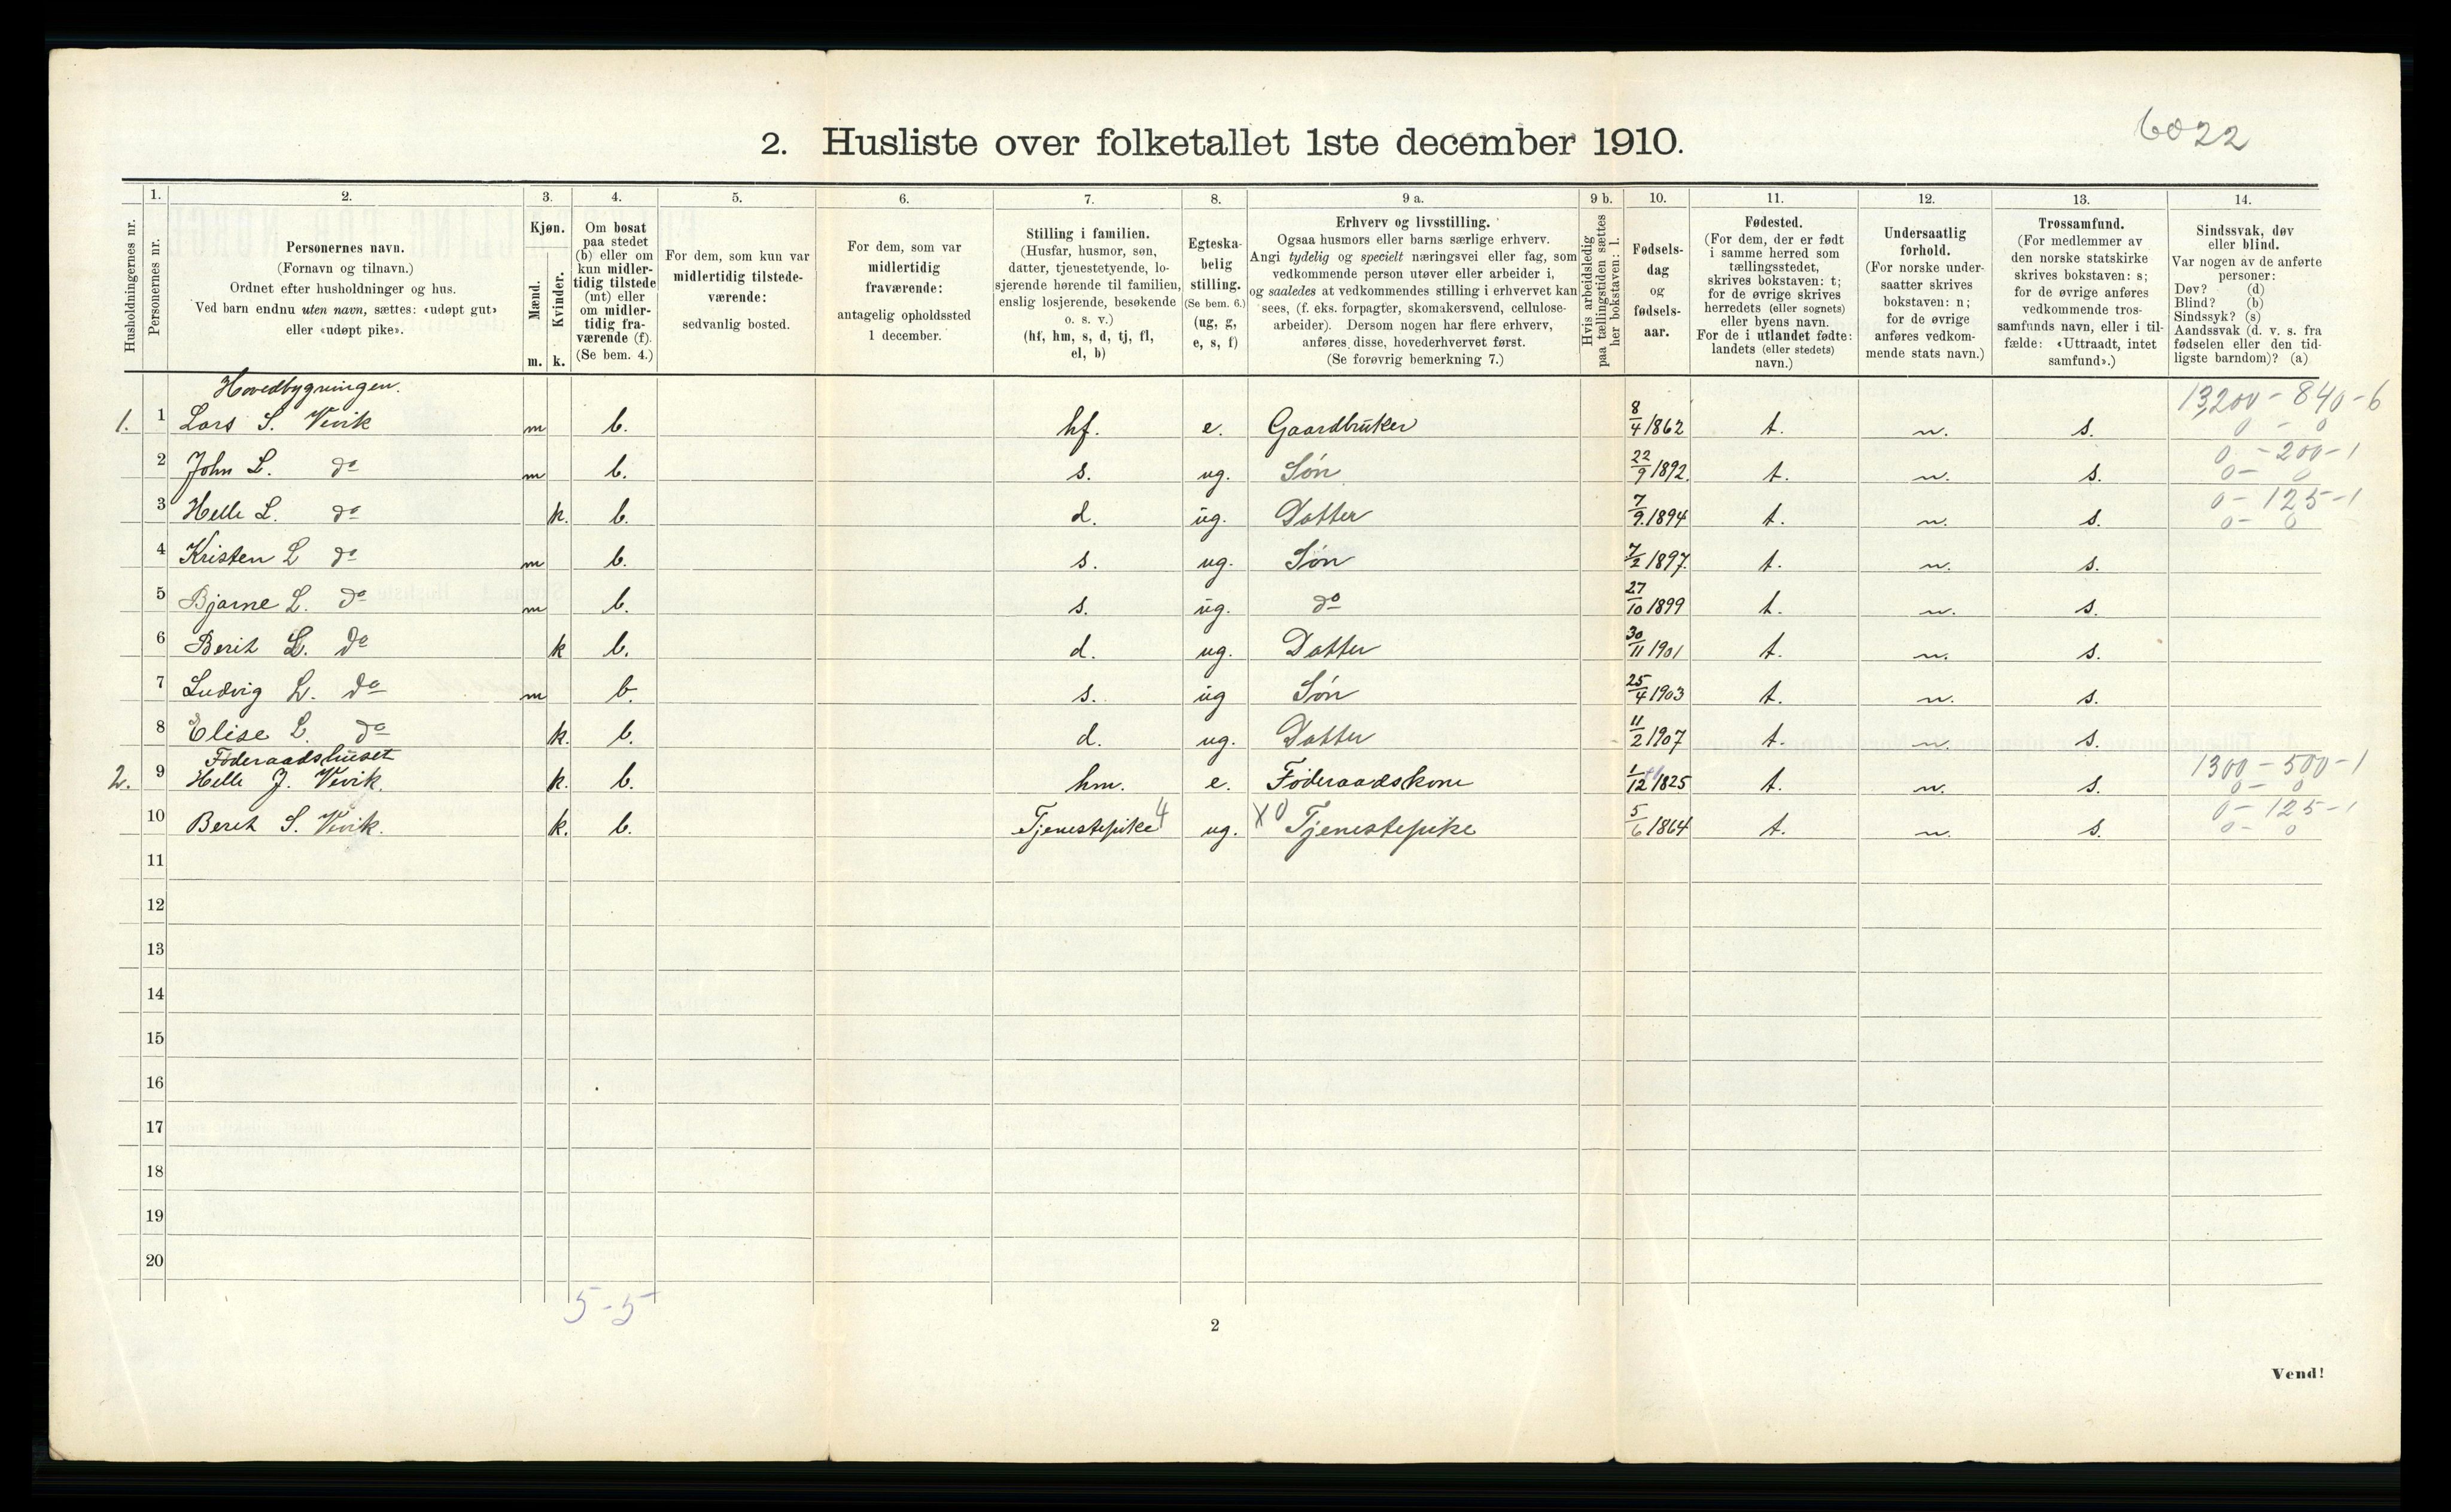 6022
2. Husliste over folketallet 1ste december 1910.
Husholdningernes nr.
1. Personernes nr.
2. Personernes navn. (Fornavn og tilnavn.) Ordnet efter husholdninger og hus. Ved barn endnu uten navn, sættes: «udøpt gut» eller «udøpt pike».
3. Kjøn. Mænd. m. Kvinder. k.
4. Om bosat paa stedet (b) eller om kun midlertidig tilstede (mt) eller om midlertidig fraværende (f). (Se bem. 4.)
5. For dem, som kun var midlertidig tilstedeværende: sedvanlig bosted.
6. For dem, som var midlertidig fraværende: antagelig opholdssted 1 december.
7. Stilling i familien. (Husfar, husmor, søn, datter, tjenestetyende, losjerende hørende til familien, enslig losjerende, besøkende o. s. v.) (hf, hm, s, d, tj, fl, el, b)
8. Egteskabelig stilling. (Se bem. 6.) (ug, g, e, s, f)
9 a. Erhverv og livsstilling. Ogsaa husmors eller barns særlige erhverv. Angi tydelig og specielt næringsvei eller fag, som vedkommende person utøver eller arbeider i, og saaledes at vedkommendes stilling i erhvervet kan sees, (f. eks. forpagter, skomakersvend, cellulosearbeider). Dersom nogen har flere erhverv, anføres disse, hovederhvervet først. (Se forøvrig bemerkning 7.)
9 b. Hvis arbeidsledig paa tællingstiden sættes her bokstaven: l.
10. Fødselsdag og fødselsaar.
11. Fødested. (For dem, der er født i samme herred som tællingsstedet, skrives bokstaven: t; for de øvrige skrives herredets (eller sognets) eller byens navn. For de i utlandet fødte: landets (eller stedets) navn.)
12. Undersaatlig forhold. (For norske undersaatter skrives bokstaven: n; for de øvrige anføres vedkommende stats navn.)
13. Trossamfund. (For medlemmer av den norske statskirke skrives bokstaven: s; for de øvrige anføres vedkommende trossamfunds navn, eller i tilfælde: «Uttraadt, intet samfund».)
14. Sindssvak, døv eller blind. Var nogen av de anførte personer: Døv? (d) Blind? (b) Sindssyk? (s) Aandssvak (d. v. s. fra fødselen eller den tidligste barndom)? (a)
Hovedbygningen. 13,200 - 840 - 6
1. 1 Lars S. Vevik m b. hf. e. Gaardbruker 8/4 1862 t. n. s. 0 - 0
0 - 200 - 1
2 John L. do m b. s. ug. Søn 22/9 1892. t. n. s. 0 - 0
0 - 125 - 1
3 Helle L. do k. b. d. ug. Datter 7/9. 1894 t. n. s. 0 - 0
4 Kristen L do m b. s. ug. Søn 7/2 1897. t. n. s.
5 Bjarne L. do m b. s. ug. do 27/10 1899 t. n. s.
6 Berit L. do k b. d. ug. Datter 30/11 1901 t. n. s.
7 Ludvig L. do m b. s. ug Søn 25/4 1903 t. n. s.
8 Elise L. do k. b. d. ug. Datter 11/2 1907 t. n. s.
Føderaadshuset 1300 - 500 - 1
2. 9 Helle J. Vevik. k. b. hm. e. Føderaadskone 1/12 1825 t. n. s. 0 - 0
0 - 125 - 1
10 Berit S. Vevik. k. b. Tjenestepike 4 ug. X0 Tjenestepike 5/6 1864 t. n. s. 0 - 0
11
12
13
14
15
16
17
18
19
20
5 - 5
2
Vend!